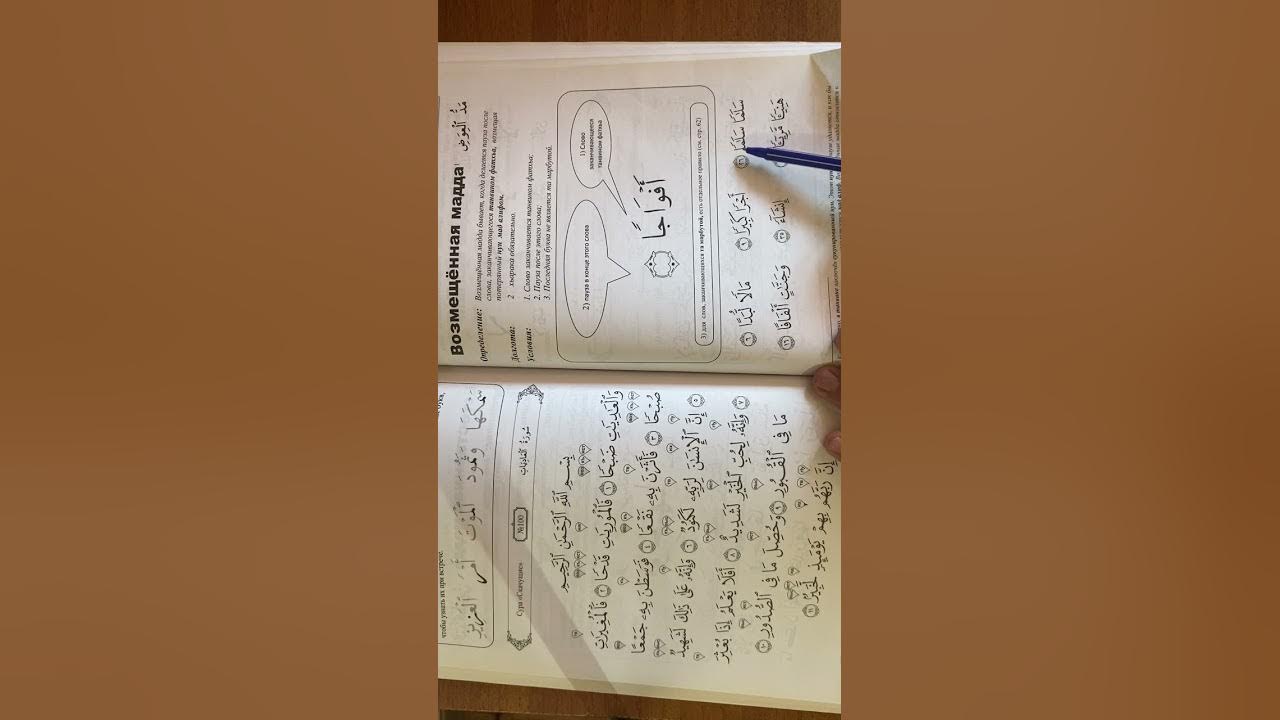 Возмещённая мадда¹ مَدُّ ٱلْعِوَضِ
Определение: Возмещённая мадда бывает, когда делается пауза после
слова, заканчивающегося танвином фатха, возмещая
потерянный нун мад алифом.
Долгота: 2 хьарака обязательно.
Условия: 1. Слово заканчивается танвином фатхьа;
2. Пауза после этого слова;
3. Последняя буква не является та марбутой.
1) Слово
заканчивающееся
танвином фатхьа
2) пауза в конце этого слова
أَفْوَاجًا
3) для слов, заканчивающихся та марбутой, есть отдельное правило (см. стр. 62)
سَلَٰمًا سَلَٰمًا ٢٦ أَجْرٌ كَبِيرٌ مَالًا لُّبَدًا ٦
هَنِيٓـًٔا مَّرِيٓـًٔا إِنشَآءً ٣٥ وَجَنَّٰتٍ أَلْفَافًا ١٦
чтобы узнать их при встрече.
سَمْكَهَا وَثَمُودَ ٱلْمَوْتَ ٱلْعَزِيزِ
Сура «Скачущие» №100 سُورَةُ ٱلْعَادِيَاتِ
بِسْمِ ٱللَّهِ ٱلرَّحْمَٰنِ ٱلرَّحِيمِ
وَٱلْعَٰدِيَٰتِ ضَبْحًا ١ فَٱلْمُورِيَٰتِ قَدْحًا ٢ فَٱلْمُغِيرَٰتِ
صُبْحًا ٣ فَأَثَرْنَ بِهِۦ نَقْعًا ٤ فَوَسَطْنَ بِهِۦ جَمْعًا
٥ إِنَّ ٱلْإِنسَٰنَ لِرَبِّهِۦ لَكَنُودٌ ٦ وَإِنَّهُۥ عَلَىٰ ذَٰلِكَ لَشَهِيدٌ
٧ وَإِنَّهُۥ لِحُبِّ ٱلْخَيْرِ لَشَدِيدٌ ٨ أَفَلَا يَعْلَمُ إِذَا بُعْثِرَ
مَا فِى ٱلْقُبُورِ ٩ وَحُصِّلَ مَا فِى ٱلصُّدُورِ ١٠
إِنَّ رَبَّهُم بِهِمْ يَوْمَئِذٍ لَّخَبِيرٌۢ ١١